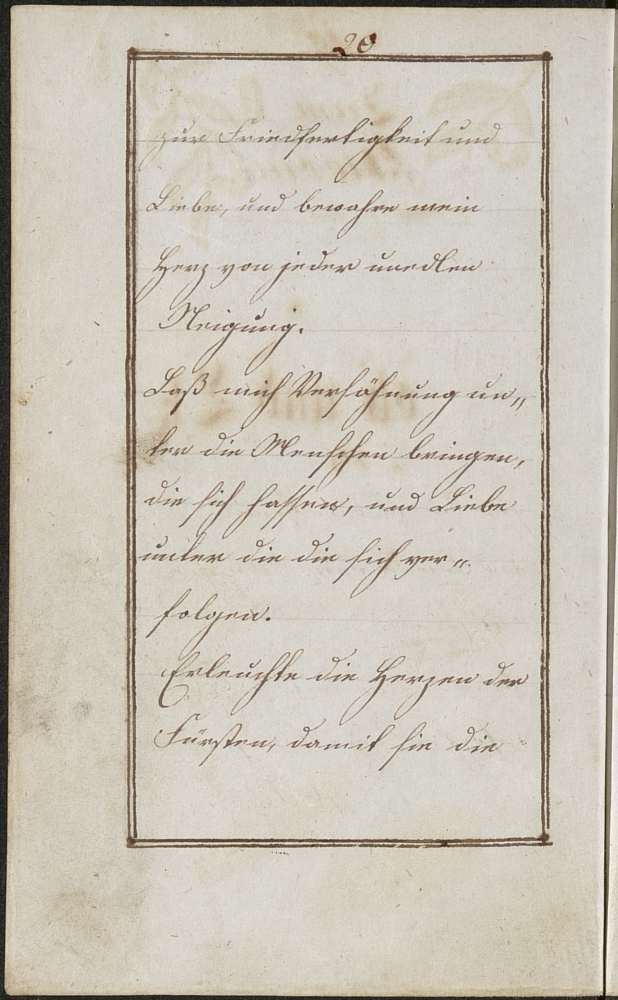 20
zur Friedfertigkeit und
Liebe, und bewahre mein
Herz von jeder unedlen
Neigung.
Laß mich Versöhnung un„
ter die Menschen bringen,
die sich hassen, und Liebe
unter die die sich ver„
folgen.
Erleuchte die Herzen der
Fürsten, damit sie die